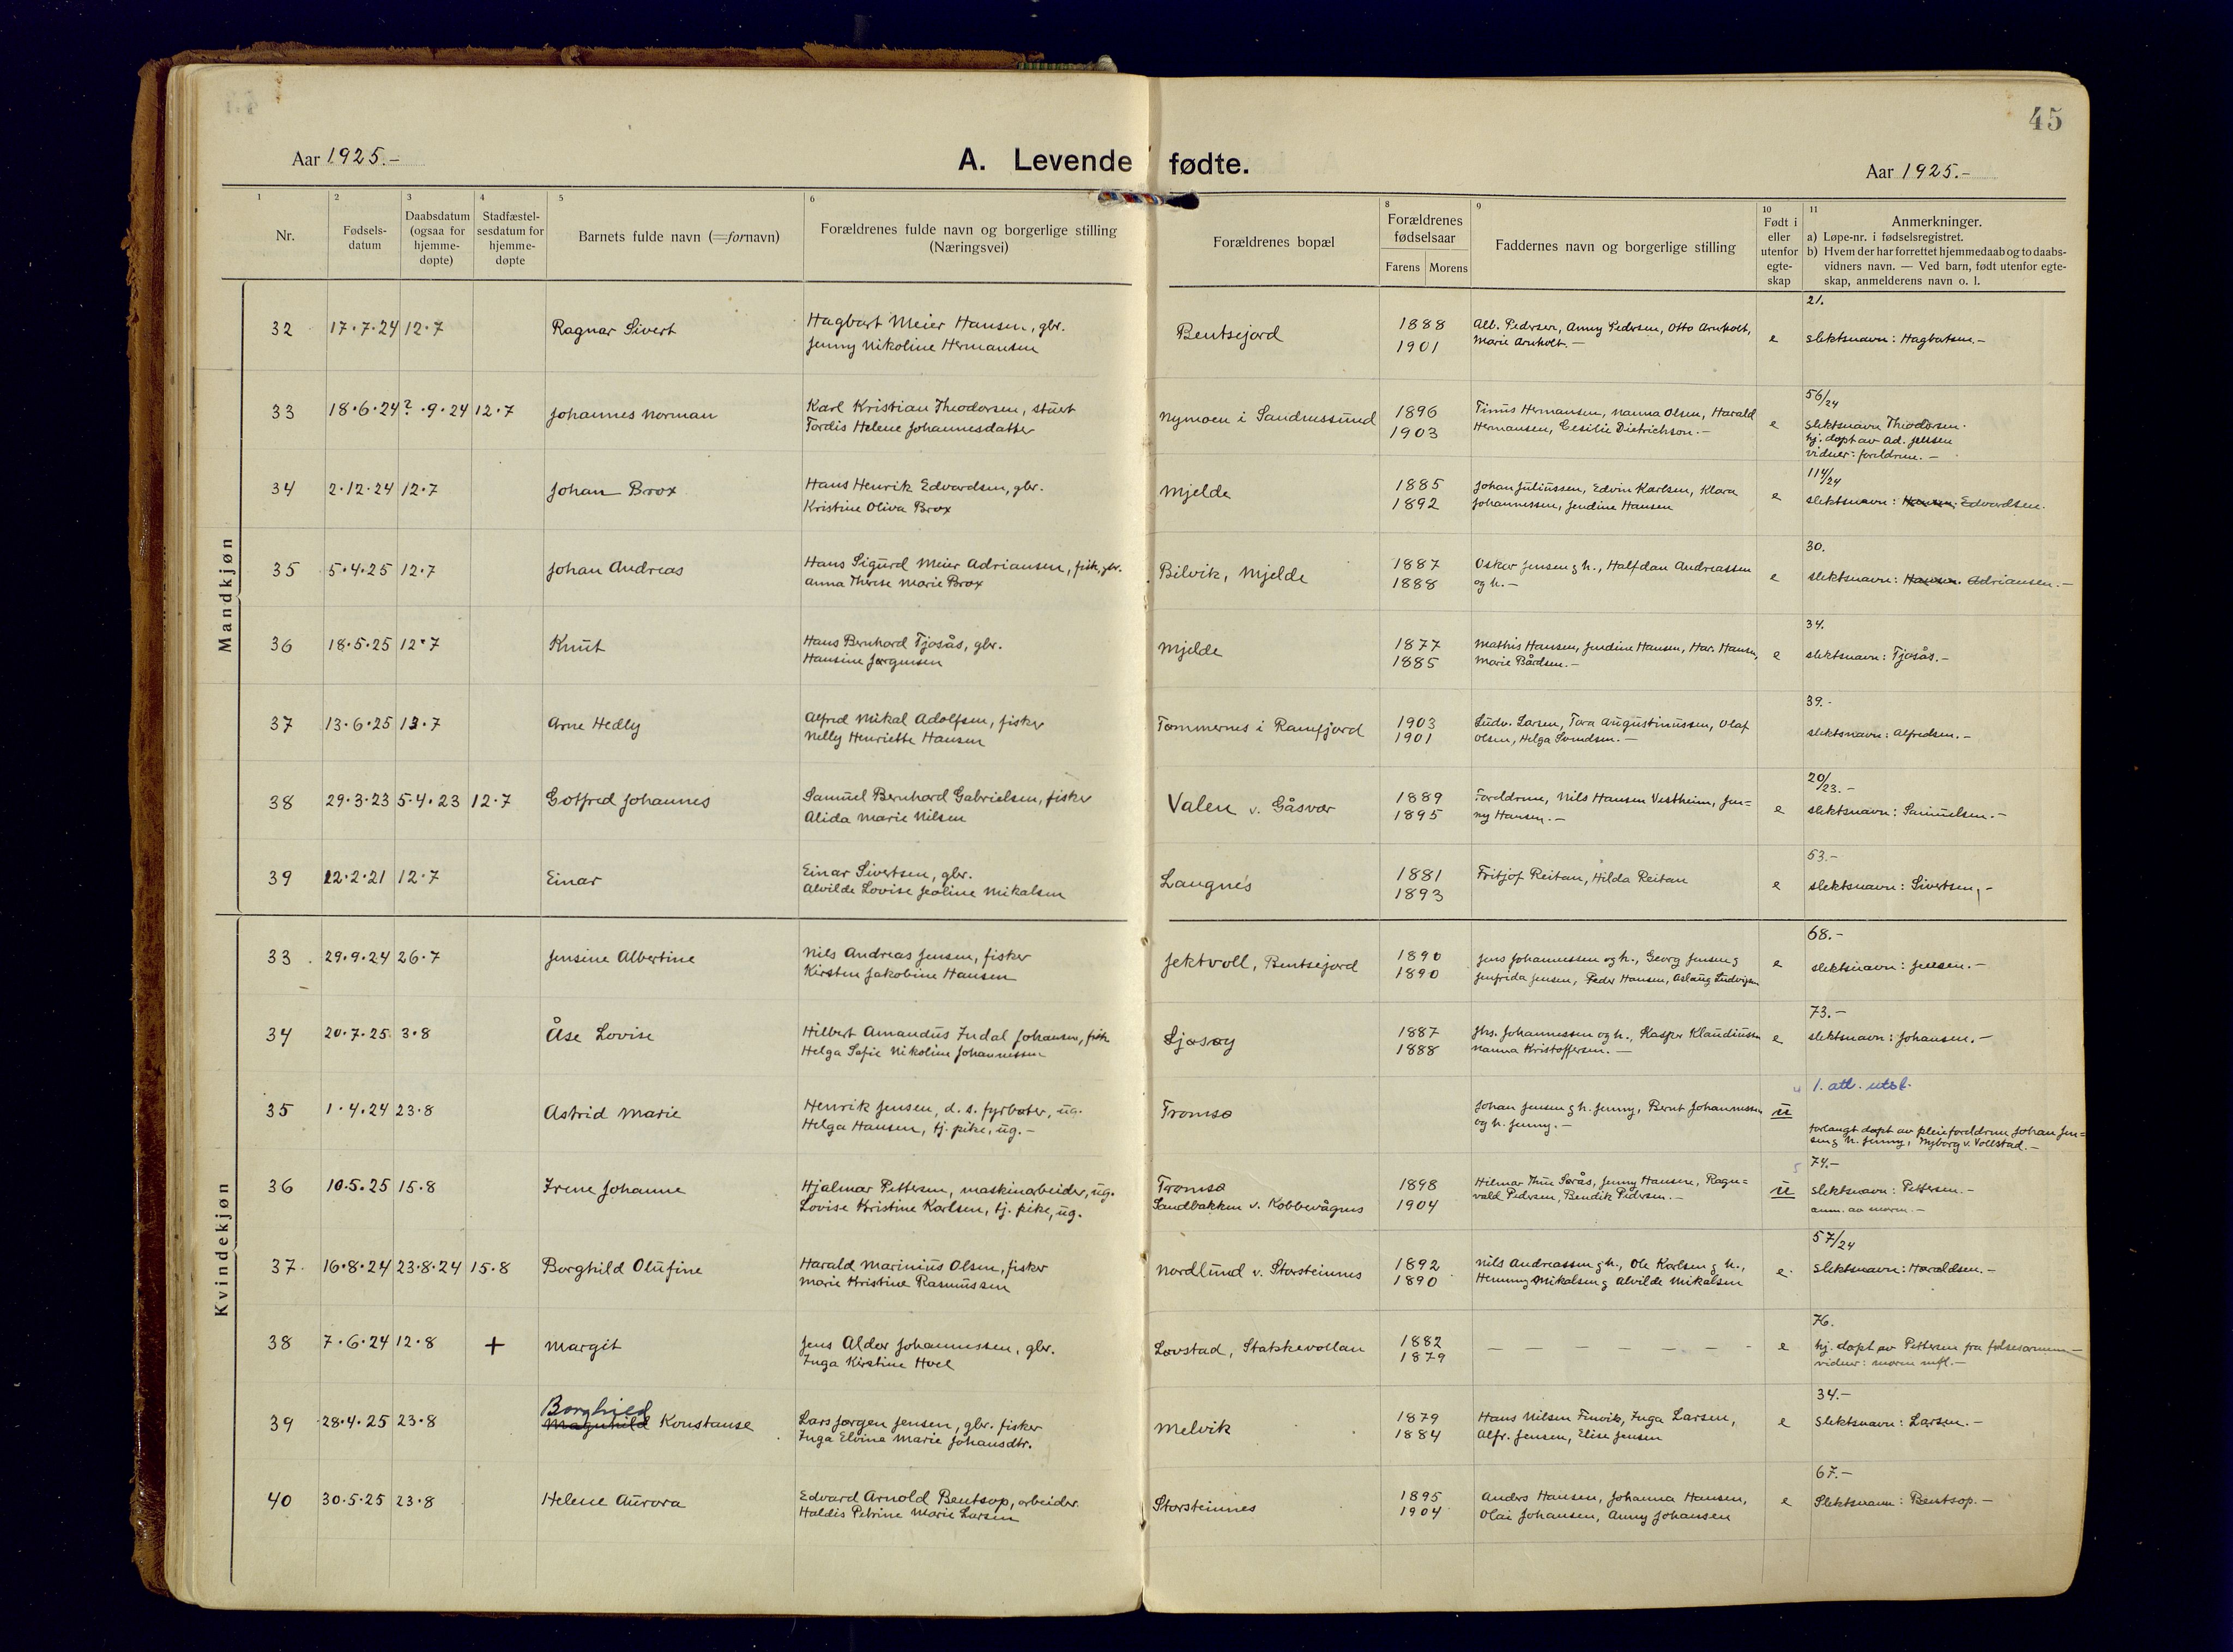 45
Aar 1925.-
A. Levende fødte.
Aar 1925.-
1 2 3 4 5 6 8 9 10 11
Nr.
Fødsels-
datum
Daabsdatum
(ogsaa for
hjemme-
døpte)
Stadfæstel-
sesdatum for
hjemme-
døpte
Barnets fulde navn (=fornavn)
Forældrenes fulde navn og borgerlige stilling
(Næringsvei)
Forældrenes bopæl
Forældrenes
fødselsaar
Farens Morens
Faddernes navn og borgerlige stilling
Født i
eller
utenfor
egte-
skap
Anmerkninger.
a) Løpe-nr. i fødselsregistret.
b) Hvem der har forrettet hjemmedaab og to daabs-
vidners navn. — Ved barn, født utenfor egte-
skap, anmelderens navn o. l.
Mandkjøn
21.
32 17.7.24 12.7 Ragnar Sivert Hagbart Meier Hansen, gbr. Bentsejord 1888 Alb. Pedersen, Anny Pedersen, Otto Arnholt, e slektsnavn: Hagbartsen.-
Jenny Nikoline Hermansen 1901 Marie Arnholt.-
56/24
33 18.6.24 ?.9.24 12.7 Johannes Norman Karl Kristian Theodorsen, stuert Nymoen i Sandnessund 1896 Tinus Hermansen, Nanna Olsen, Harald e slektsnavn Theodorsen.
Tordis Helene Johannesdatter 1903 Hermansen, Cesilie Dietrichson.- hj. døpt av Ad. Jessen
vidner: foreldrene.-
114/24
34 2.12.24 12.7 Johan Brox Hans Henrik Edvardsen, gbr. Mjelde 1885 Johan Juliussen, Edvin Karlsen, Klara e slektsnavn: Hansen. Edvardsen.
Kristine Oliva Brox 1892 Johannessen, Jendine Hansen
30.
35 5.4.25 12.7 Johan Andreas Hans Sigurd Meier Adriansen, fisk. gbr. Bilvik, Mjelde 1887 Oskar Jensen g h., Halfdan Andreassen e slektsnavn: Hansen. Adriansen.-
Anna Therese Marie Brox 1888 og h.-
34.
36 18.5.25 12.7 Knut Hans Bernhard Tjosås, gbr. Mjelde 1877 Mathis Hansen, Jendine Hansen, Har. Hansen, e slektsnavn: Tjosås.-
Hansine Jørgensen 1885 Marie Bårdsen.-
39.-
37 13.6.25 12.7 Arne Hedly Alfred Mikal Adolfsen, fisker Tømmernes i Ramfjord 1903 Ludv. Larsen, Tora Augustinussen, Olaf slektsnavn: Alfredsen.-
Nelly Henriette Hansen 1901 Olsen, Helga Svendsen.-
20/23.-
38 29.3.23 5.4.23 12.7 Gotfred Johannes Samuel Bernhard Gabrielsen, fisker Valen v. Gåsvær 1889 Foreldrene, Nils Hansen Vestheim, Jen= e slektsnavn: Samuelsen.-
Alida Marie Nilsen 1895 ny Hansen.-
53.-
39 22.2.21 12.7 Einar Einar Sivertsen, gbr. Langnes 1881 Fritjof Reitan, Hilda Reitan e slektsnavn: Sivertsen,-
Alvilde Lovise Jeoline Mikalsen 1893
Kvindekjøn
68.-
33 29.9.24 26.7 Jensine Albertine Nils Andreas Jensen, fisker Jektvoll, Bentsejord 1890 Jens Johannessen og h., Georg Jensen g e slektsnavn: Jensen.-
Kirsten Jakobine Hansen 1890 Jenfrida Jensen, Peder Hansen, Aslaug Ludvigsen
73.-
34 20.7.25 3.8 Åse Lovise Hilbert Amandus Indal Johansen, fisk. Ljøsøy 1887 Jhs. Johannessen og h., Kasper Klaudiussen e slektsnavn: Johansen.-
Helga Sofie Nikoline Johannessen 1888 Nanna Kristoffersen.-
1. att. utst.
35 1.4.24 23.8 Astrid Marie Henrik Jensen, d. s. fyrbøter, ug. Tromsø Johan Jensen g h. Jenny, Bernt Johannessen u
Helga Hansen, tj. pike, ug.- og h. Jenny.- forlangt døpt av pleieforeldrene Johan Jen=
sen g h. Jenny, Nyborg v. Vollstad.-
74.-
36 10.5.25 15.8 Irene Johanne Hjalmar Pettersen, maskinarbeider, ug. Tromsø 1898 Hilmar Thue Sørås, Jenny Hansen, Ragn- u slektsnavn: Pettersen.-
Lovise Kristine Karlsen, tj. pike, ug. Sandbakken v. Kobbevågnes 1904 vald Pedersen, Bendik Pedersen.- anm. av moren.-
57/24
37. 16.8.24 23.8.24 15.8 Borghild Olufine Harald Marinius Olsen, fisker Nordlund v. Storsteinnes 1892 Nils Andreassen g h., Ole Karlsen g h., e. slektsnavn: Haraldsen.-
Marie Kristine Rasmussen 1890 Henning Mikalsen g Alvilde Mikalsen
76.
38 7.6.24 12.8 + Margit Jens Aldor Johannessen, gbr. Løvstad, Stakkevollan 1882 — — — — — — - e hj. døpt av Pettersen fra
Inga Kirstine Hvel 1879 vidner: moren mfl.-
34.-
Borghild
39 28.4.25 23.8 Magnhild Konstanse Lars Jørgen Jensen, gbr. fisker Melvik 1879 Hans Nilsen Finvik, Inga Larsen, e slektsnavn: Larsen.-
Inga Elvine Marie Johansdtr. 1884 Alfr. Jensen, Elise Jensen
67.-
40 30.5.25 23.8 Helene Aurora Edvard Arnold Bentsop, arbeider Storsteinnes 1895 Anders Hansen, Johanna Hansen, e Slektsnavn: Bentsop.-
Haldis Petrine Marie Larsen 1904 Olai Johansen, Anny Johansen